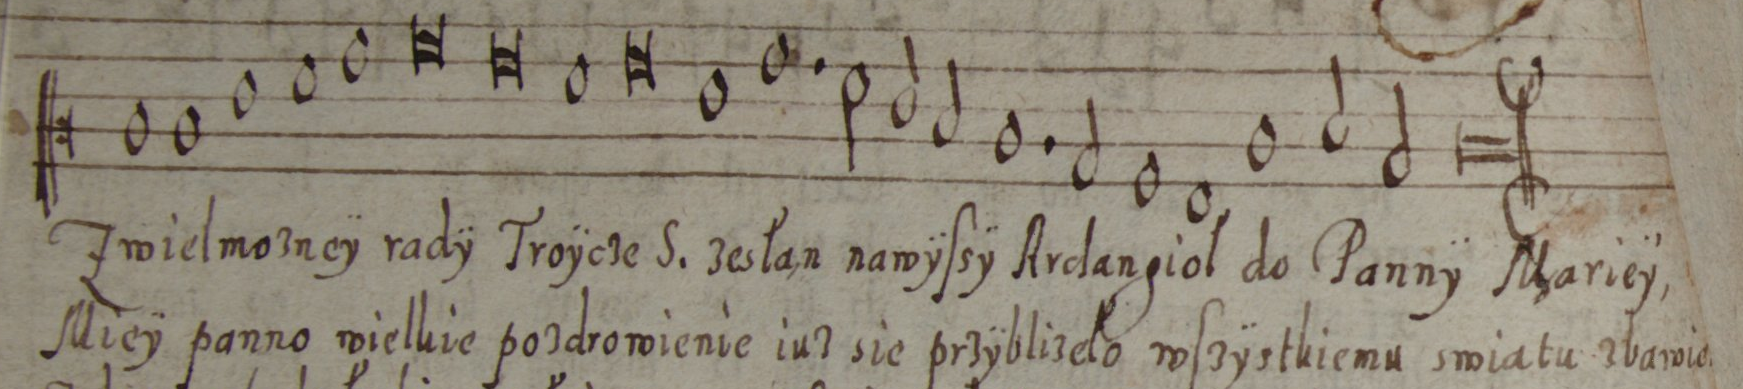 Zwielmożneÿ radÿ Troÿcże S. zesłan nawÿſsÿ Archangioł do Pannÿ Marieÿ,
Mieÿ panno wielkie pozdrowienie iuż sie przÿbliżeło wſzÿstkiemu swiatu zbawie